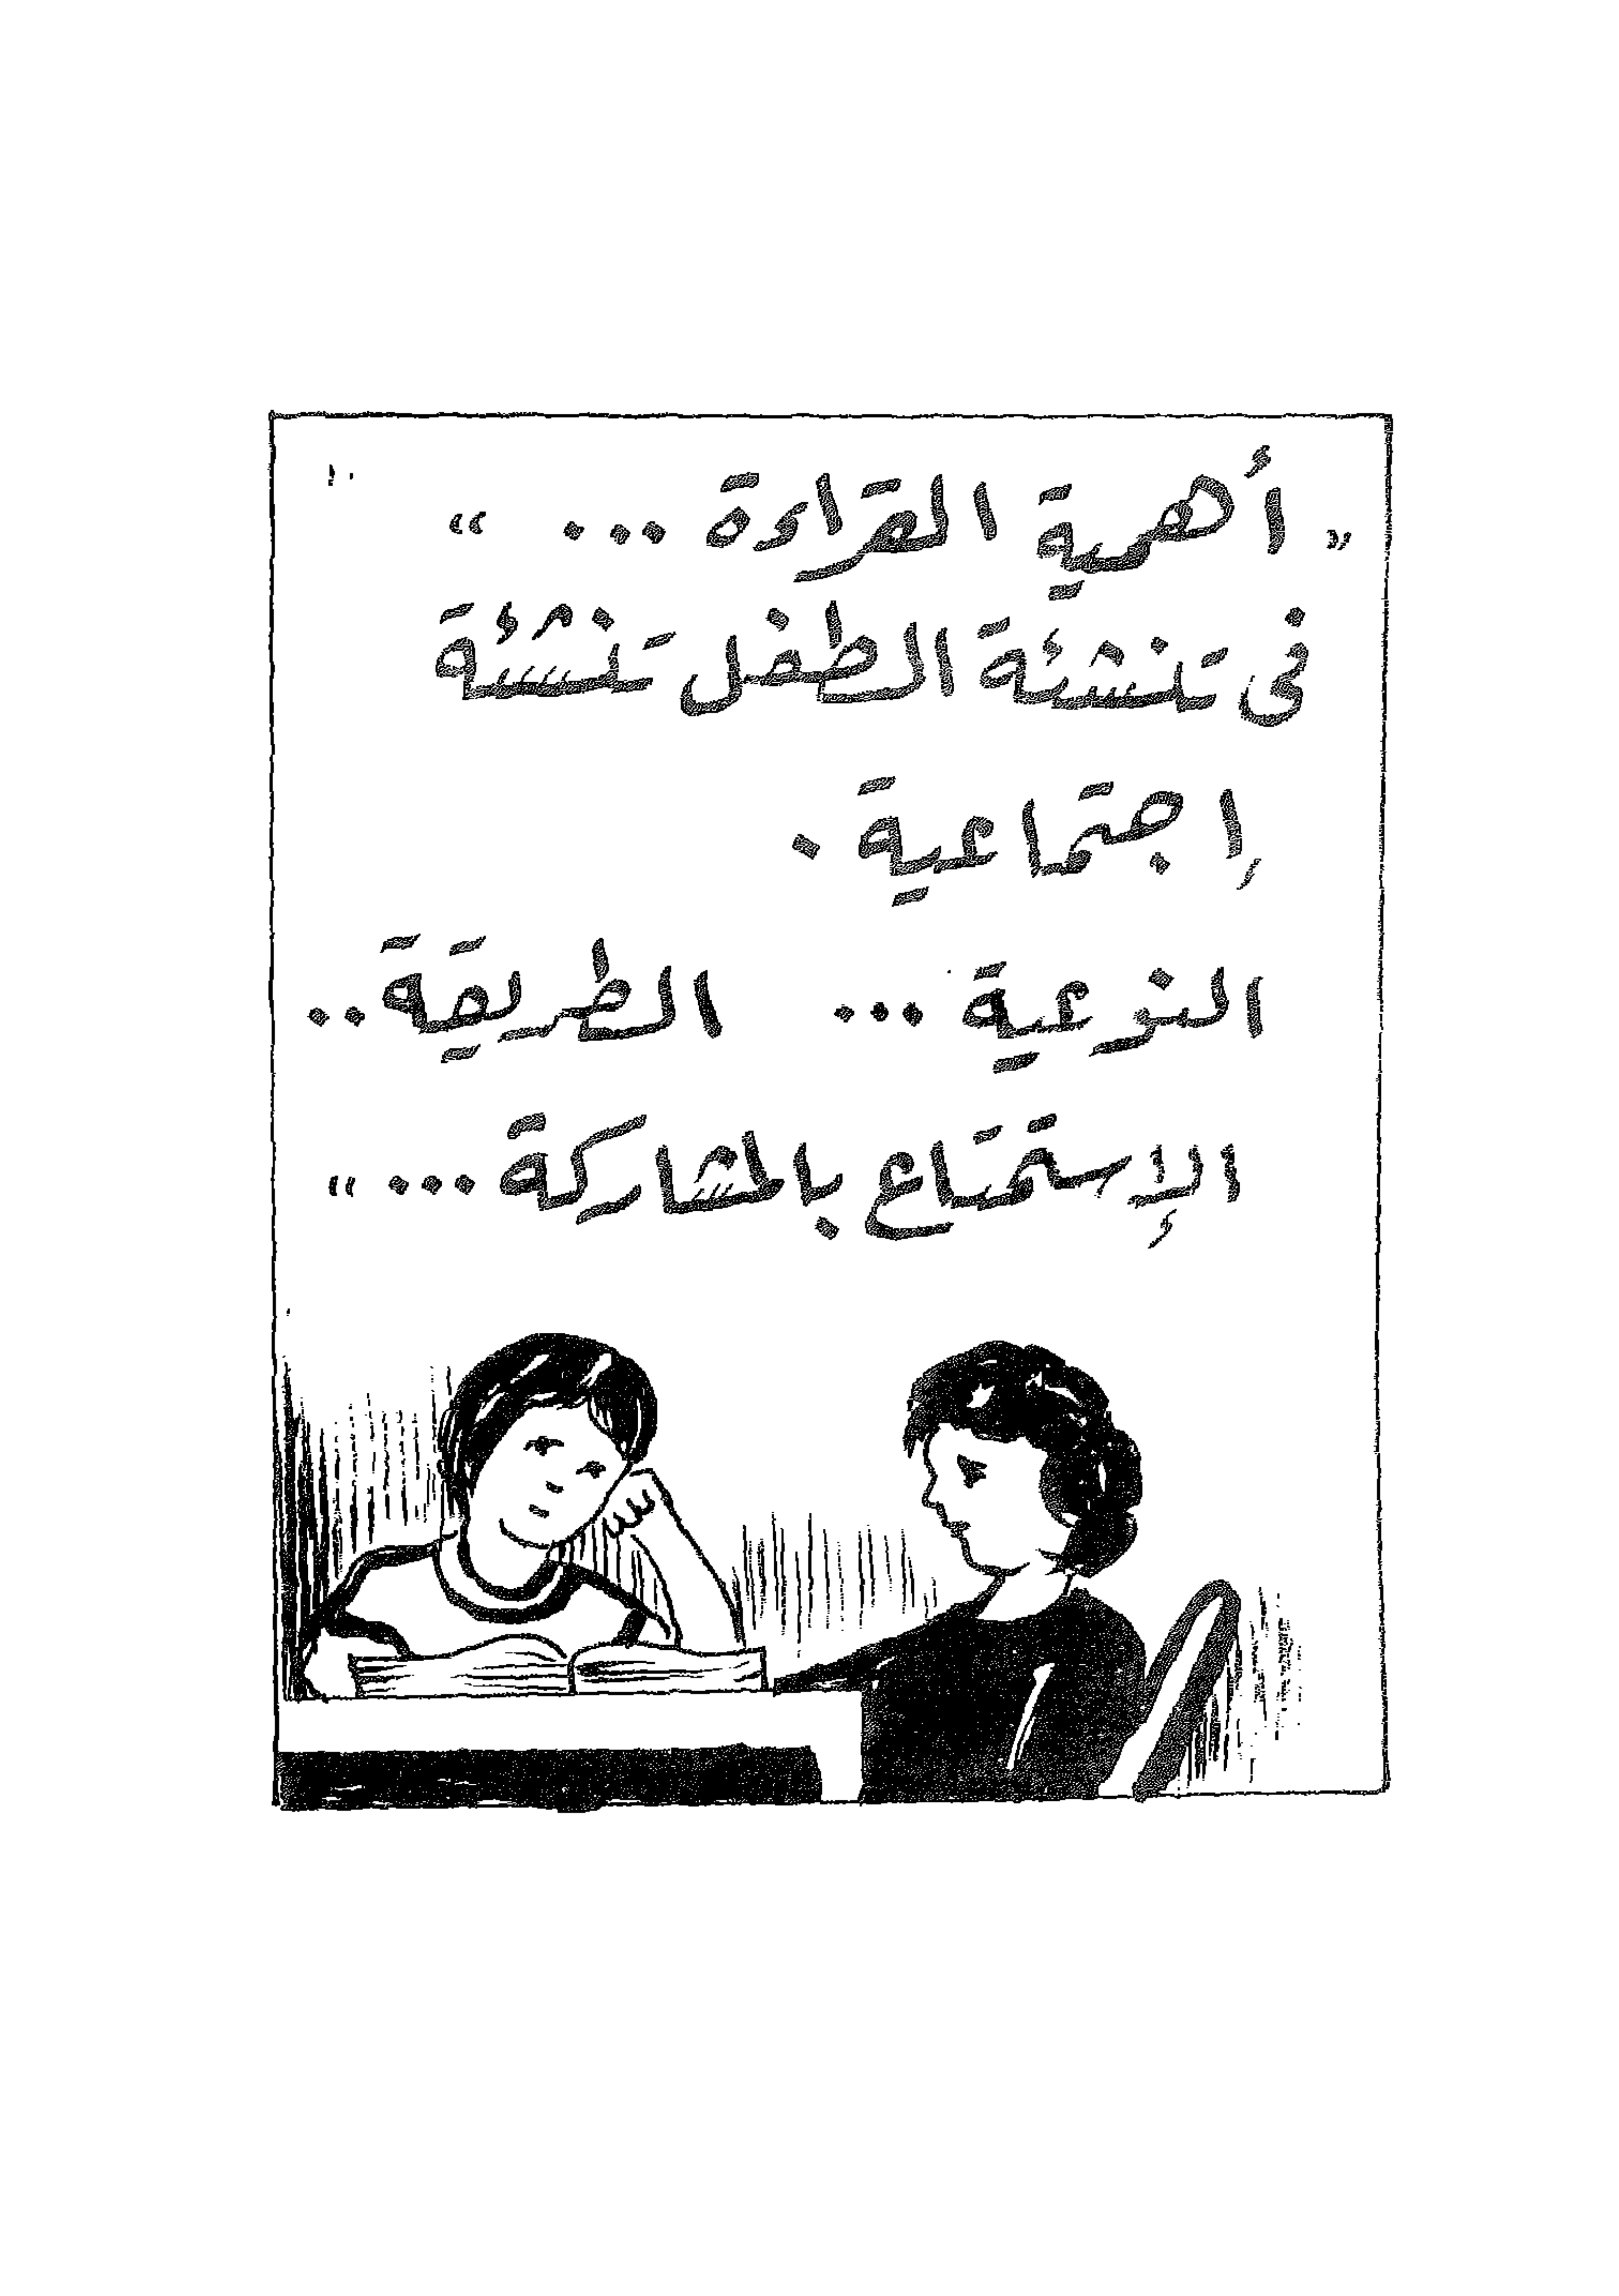 " أهمية القراءة ... "
فى تنشئة الطفل تنشئة
إجتماعية .
النوعية ... الطريقة ..
الإستمتاع بالمشاركة ... "